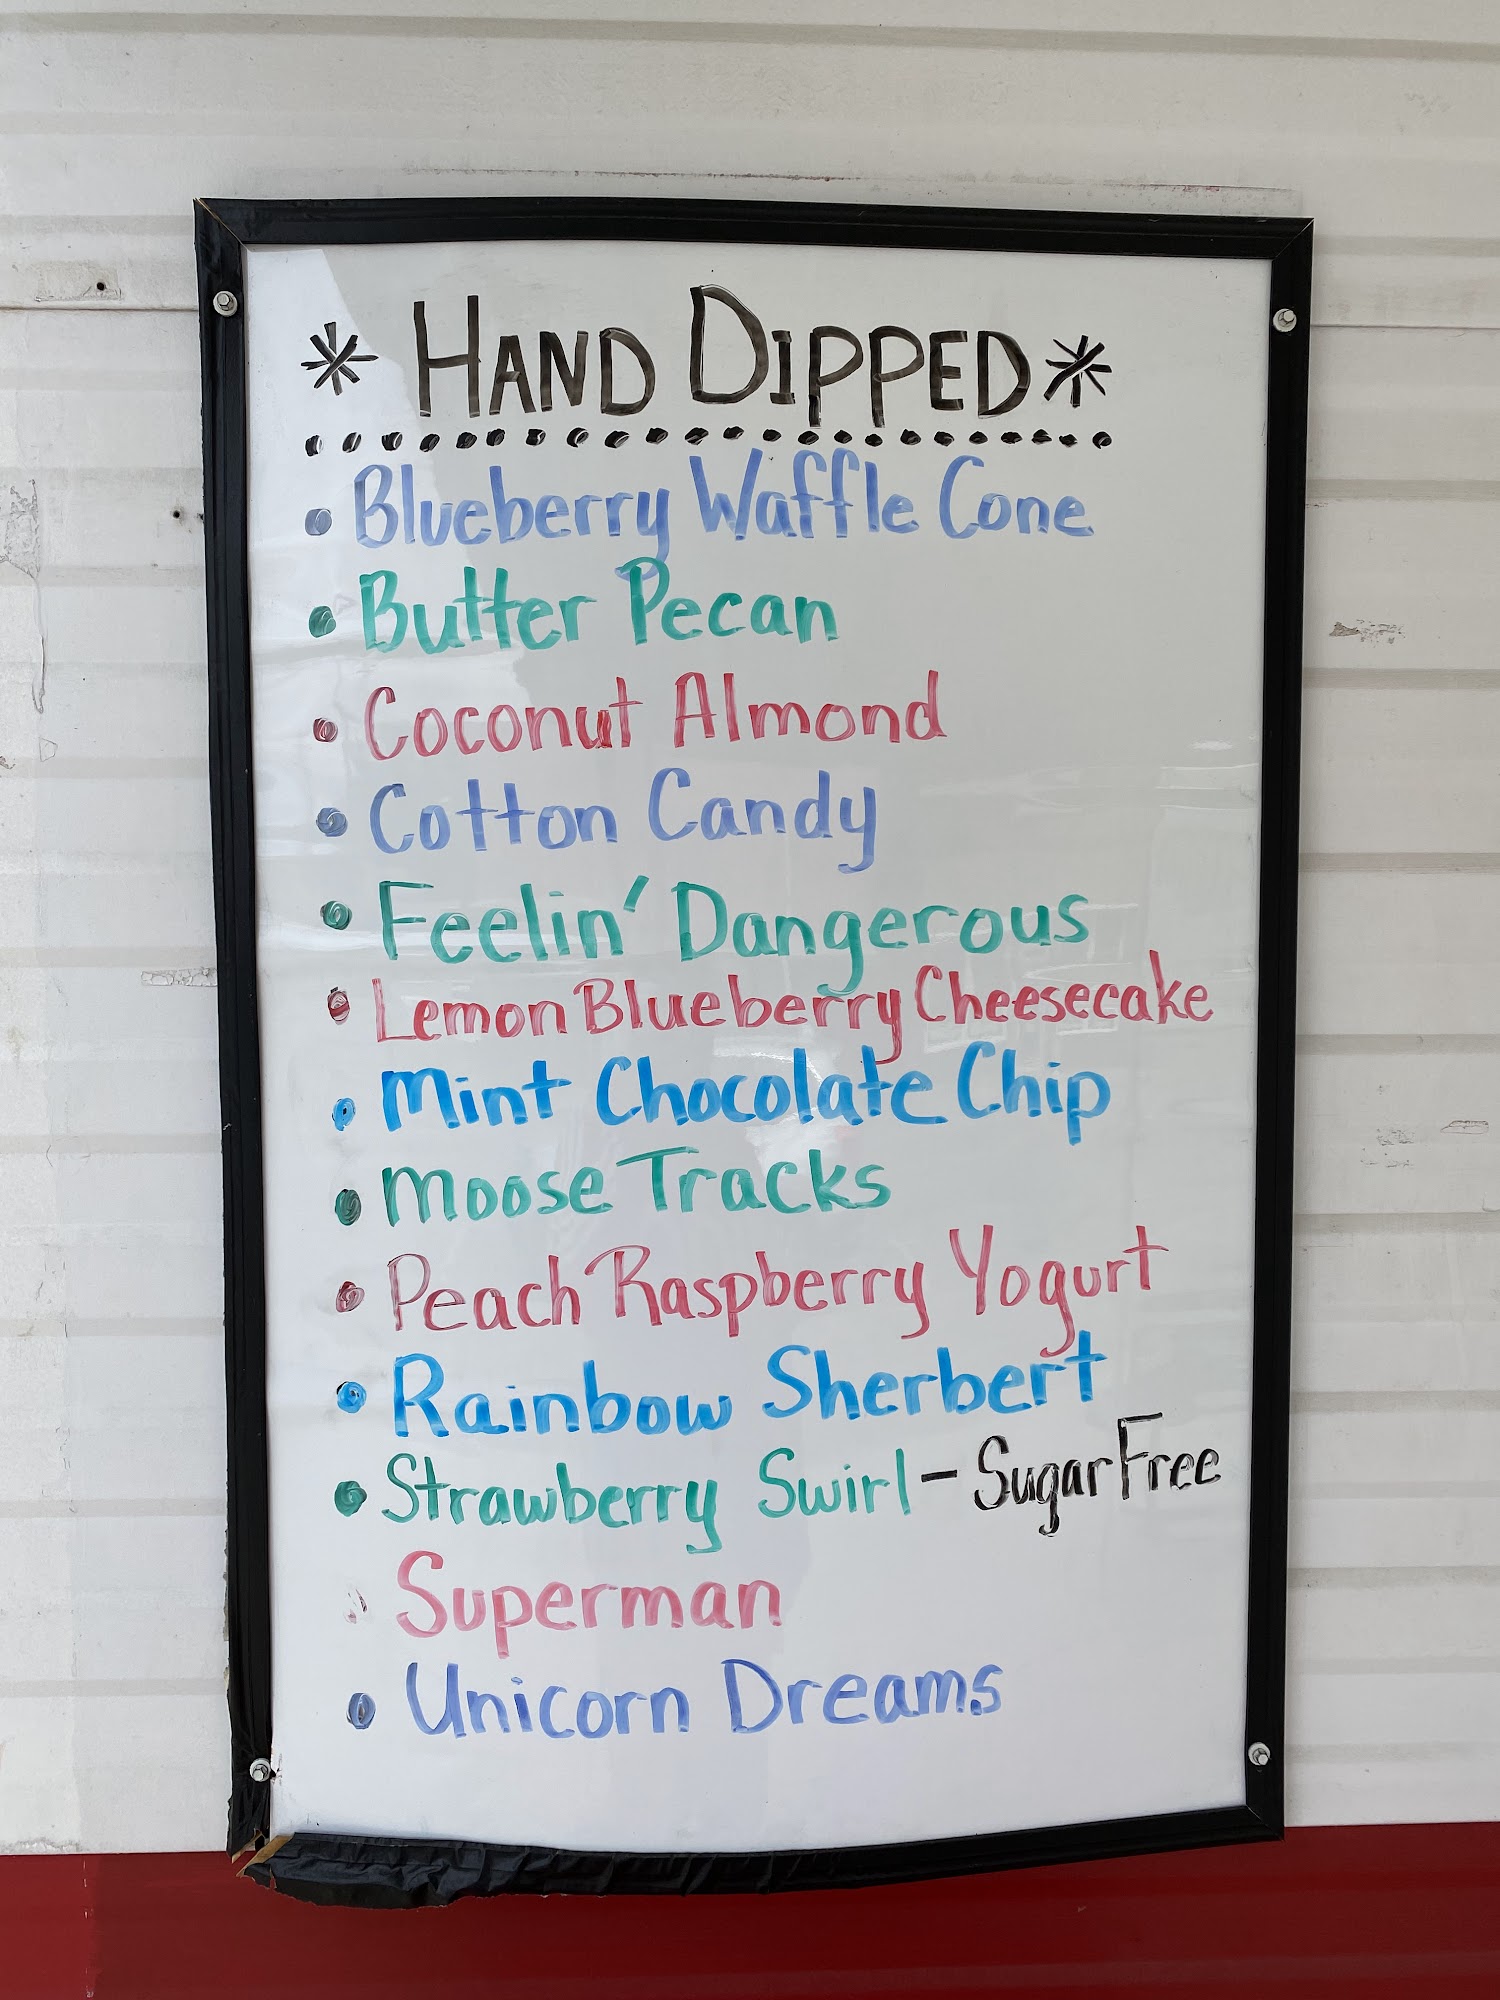 * HAND DIPPED *
• Blueberry Waffle Cone
• Butter Pecan
• Coconut Almond
• Cotton Candy
• Feelin' Dangerous
• Lemon Blueberry Cheesecake
• Mint Chocolate Chip
• Moose Tracks
• Peach Raspberry Yogurt
• Rainbow Sherbert
• Strawberry Swirl - Sugar Free
• Superman
• Unicorn Dreams